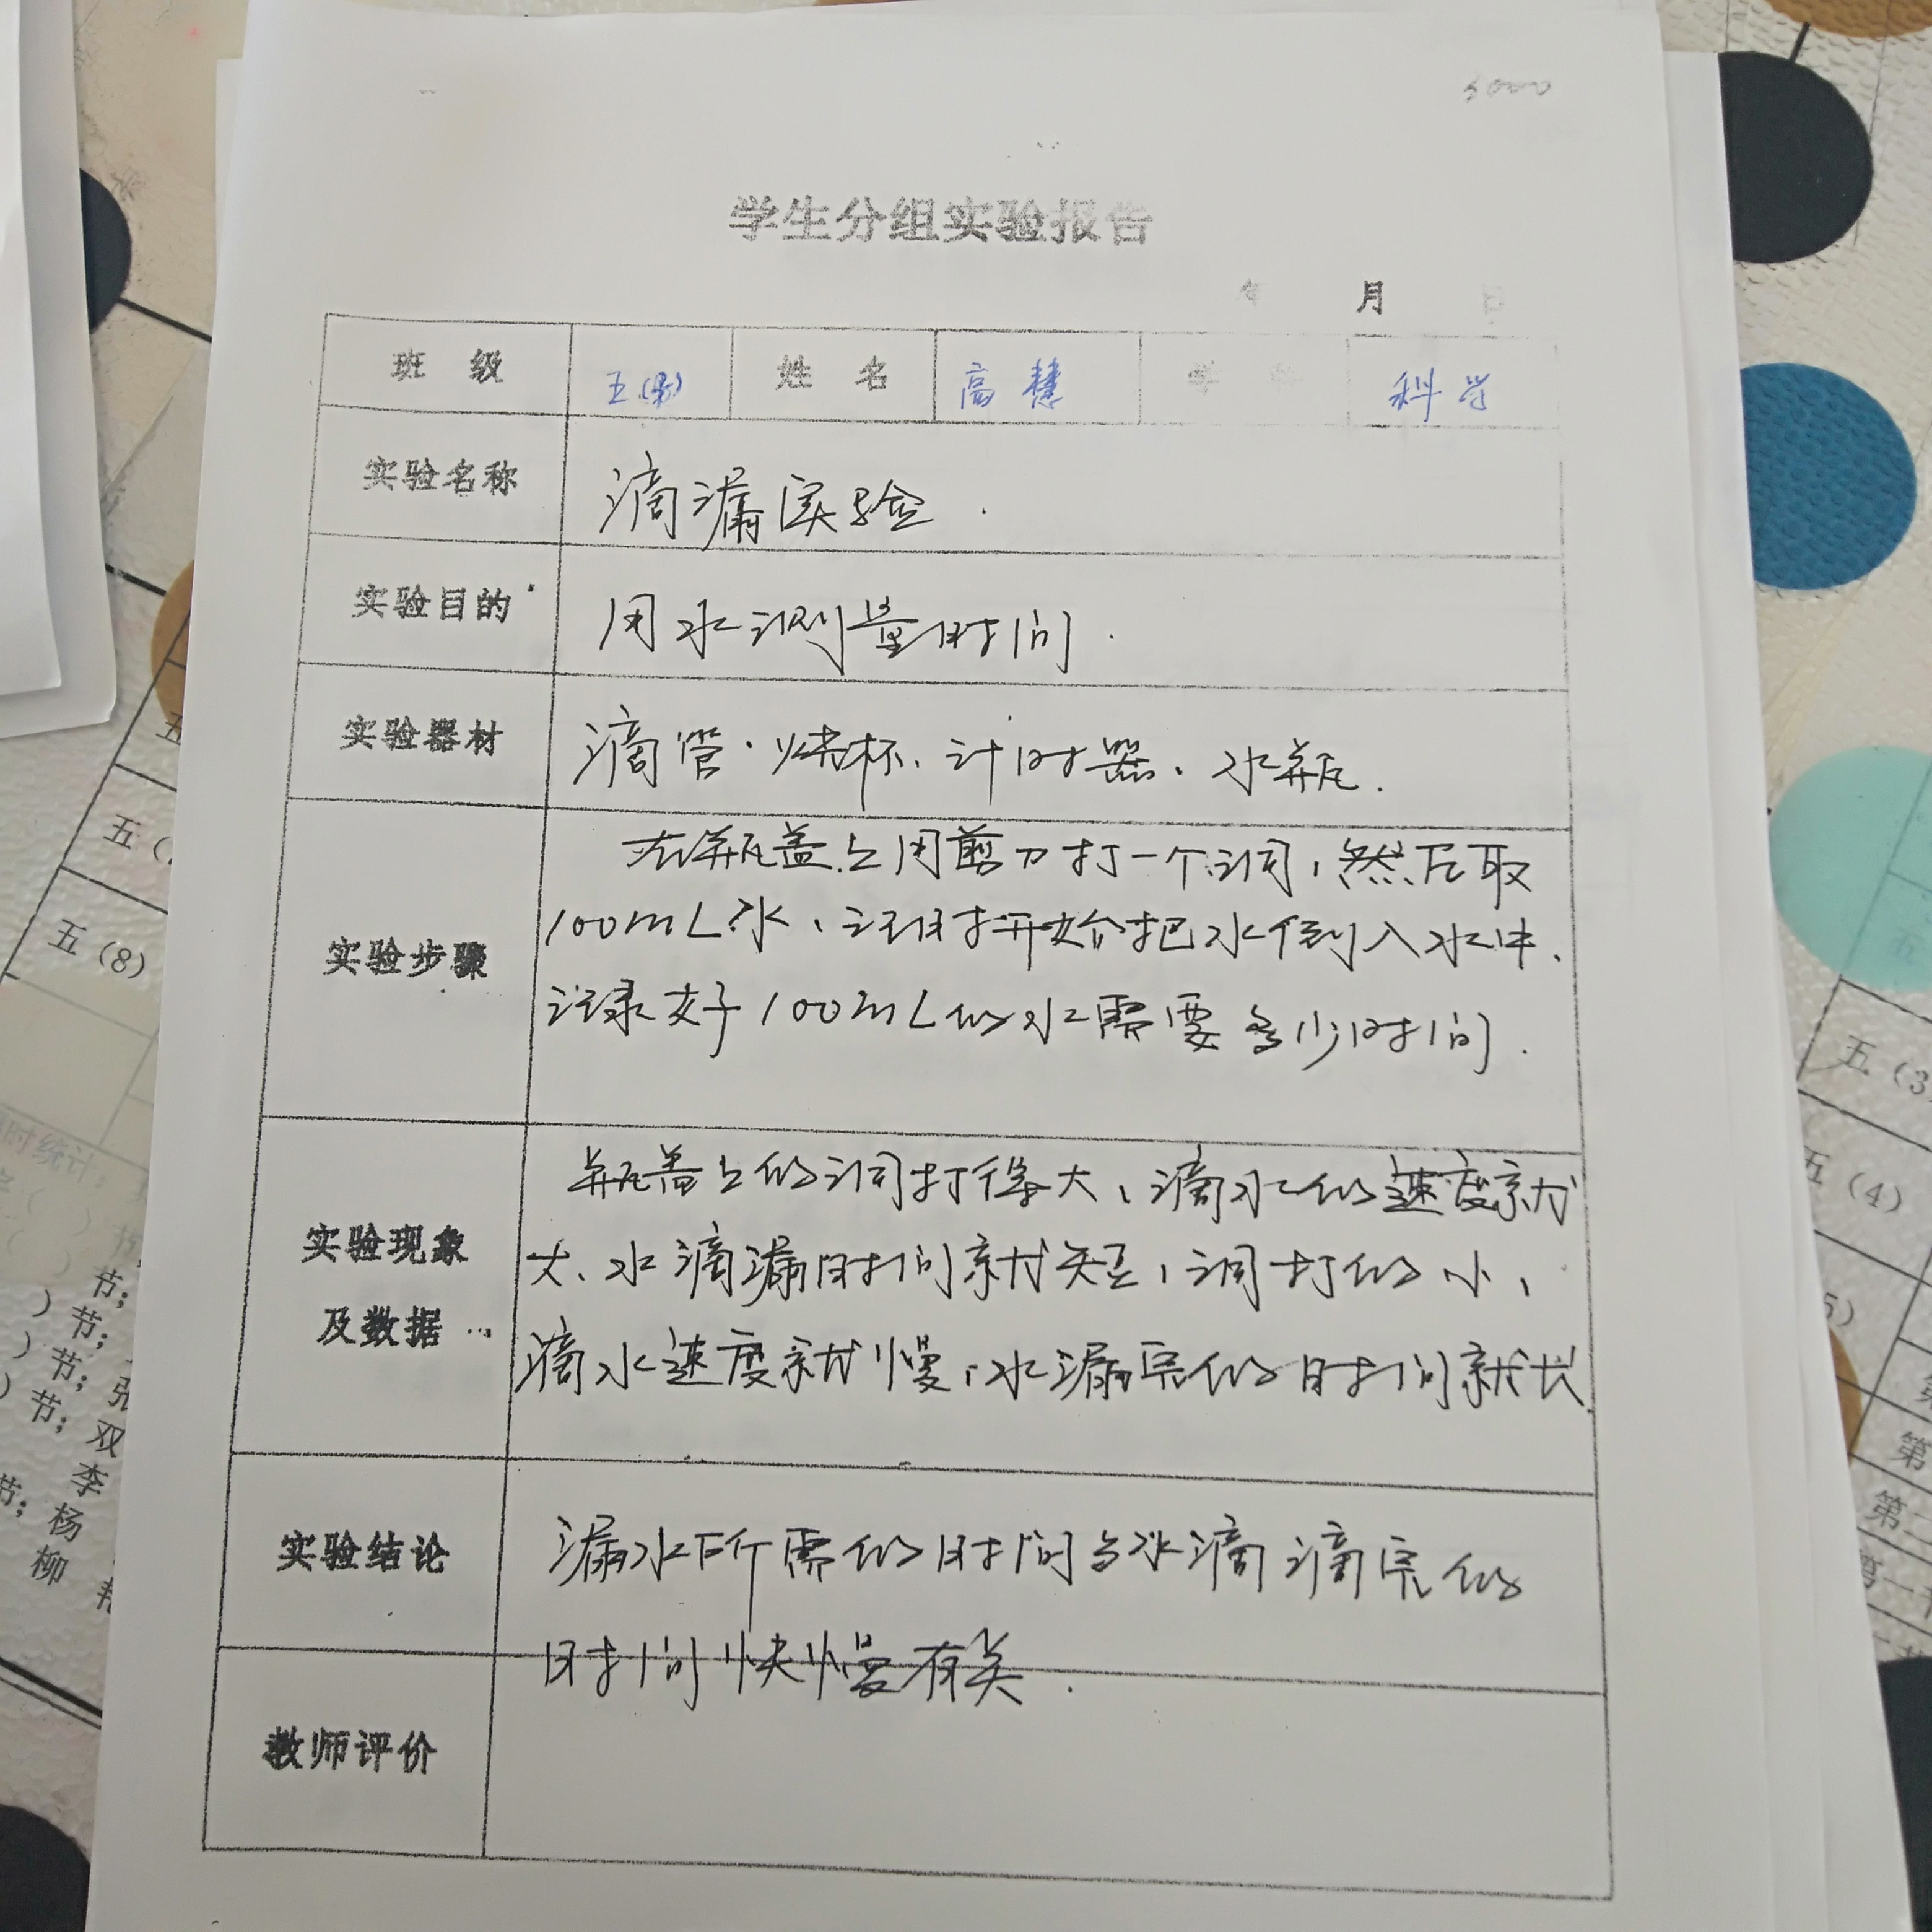 学生分组实验报告
年 月 日
班 级 五 姓 名 高慧 学 科学
实验名称 滴漏实验.
实验目的 用水测量时间.
实验器材 滴管.烧杯、计时器、水瓶.
实验步骤
在瓶盖上用剪刀打一个洞,然后取
100mL水、计时开始把水倒入水中、
记录好100mL的水需要多少时间.
实验现象
及数据
瓶盖上的洞打得大、滴水的速度就
大、水滴漏时间就短,洞打的小,
滴水速度就慢,水漏完的时间就长.
实验结论
漏水所需的时间与水滴滴完的
时间快慢有关.
教师评价
五(8)
时统计:
节;
)节;
)节;张
)节;双
李
节;杨
柳
五(3)
五(4)
第
第二
第一